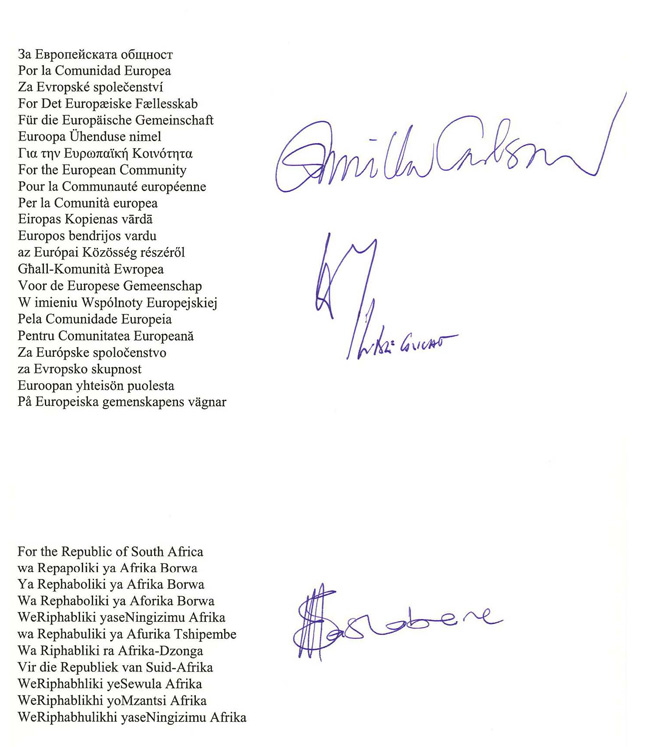 За Европейската общност
Por la Comunidad Europea
Za Evropské společenství
For Det Europæiske Fællesskab
Für die Europäische Gemeinschaft
Euroopa Ühenduse nimel
Για την Ευρωπαϊκή Κοινότητα
For the European Community
Pour la Communauté européenne
Per la Comunità europea
Eiropas Kopienas vārdā
Europos bendrijos vardu
az Európai Közösség részéről
Għall-Komunità Ewropea
Voor de Europese Gemeenschap
W imieniu Wspólnoty Europejskiej
Pela Comunidade Europeia
Pentru Comunitatea Europeană
Za Európske spoločenstvo
za Evropsko skupnost
Euroopan yhteisön puolesta
På Europeiska gemenskapens vägnar
For the Republic of South Africa
wa Repapoliki ya Afrika Borwa
Ya Rephaboliki ya Afrika Borwa
Wa Rephaboliki ya Aforika Borwa
WeRiphabliki yaseNingizimu Afrika
wa Rephabuliki ya Afurika Tshipembe
Wa Riphabliki ra Afrika-Dzonga
Vir die Republiek van Suid-Afrika
WeRiphabhliki yeSewula Afrika
WeRiphablikhi yoMzantsi Afrika
WeRiphabhulikhi yaseNingizimu Afrika